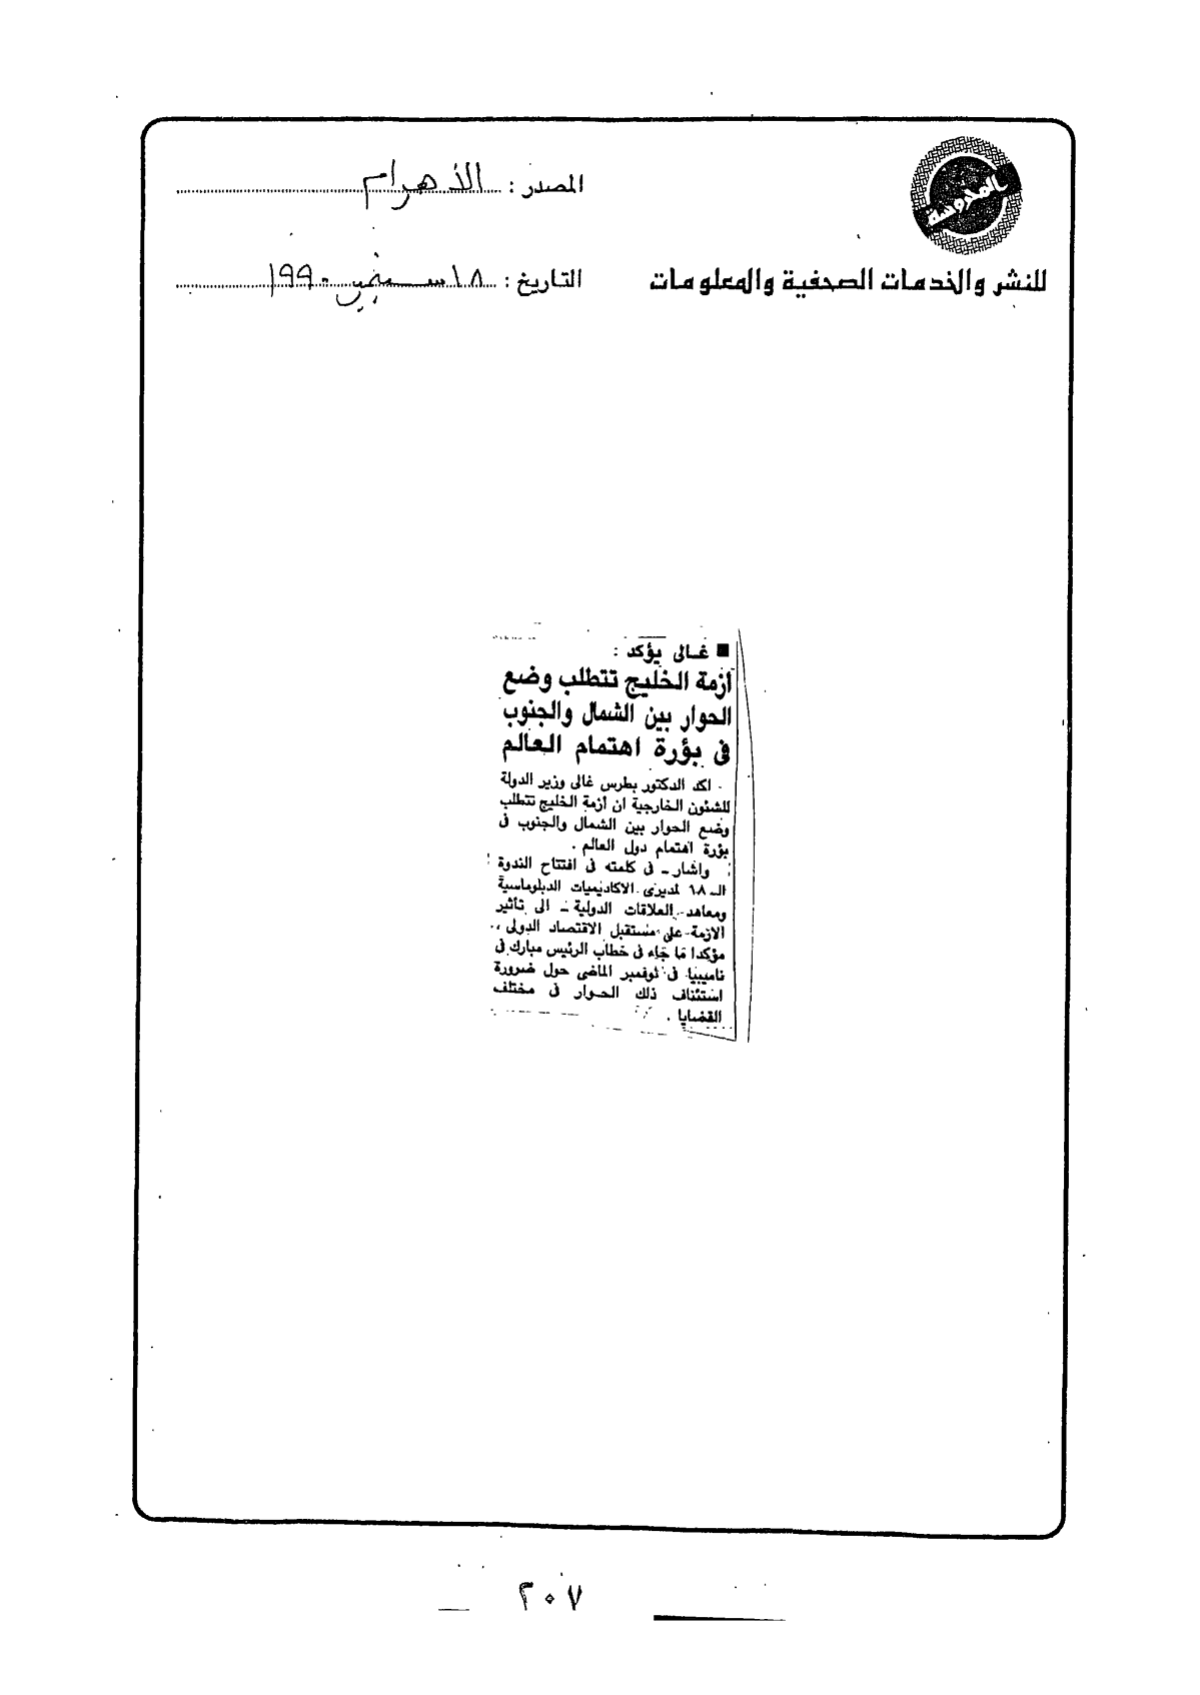 المحروسة
للنشر والخدمات الصحفية والمعلومات
المصدر : الأهرام
التاريخ : ١٨ سبتمبر ١٩٩٠
■ غالى يؤكد :
أزمة الخليج تتطلب وضع
الحوار بين الشمال والجنوب
فى بؤرة اهتمام العالم
اكد الدكتور بطرس غالى وزير الدولة
للشئون الخارجية ان أزمة الخليج تتطلب
وضع الحوار بين الشمال والجنوب فى
بؤرة اهتمام دول العالم .
واشار ـ فى كلمته فى افتتاح الندوة
الـ ١٨ لمديرى الاكاديميات الدبلوماسية
ومعاهد العلاقات الدولية ـ الى تأثير
الازمة على مستقبل الاقتصاد الدولى ،
مؤكدا ما جاء فى خطاب الرئيس مبارك فى
ناميبيا فى نوفمبر الماضى حول ضرورة
استئناف ذلك الحوار فى مختلف
القضايا .
٢٠٧